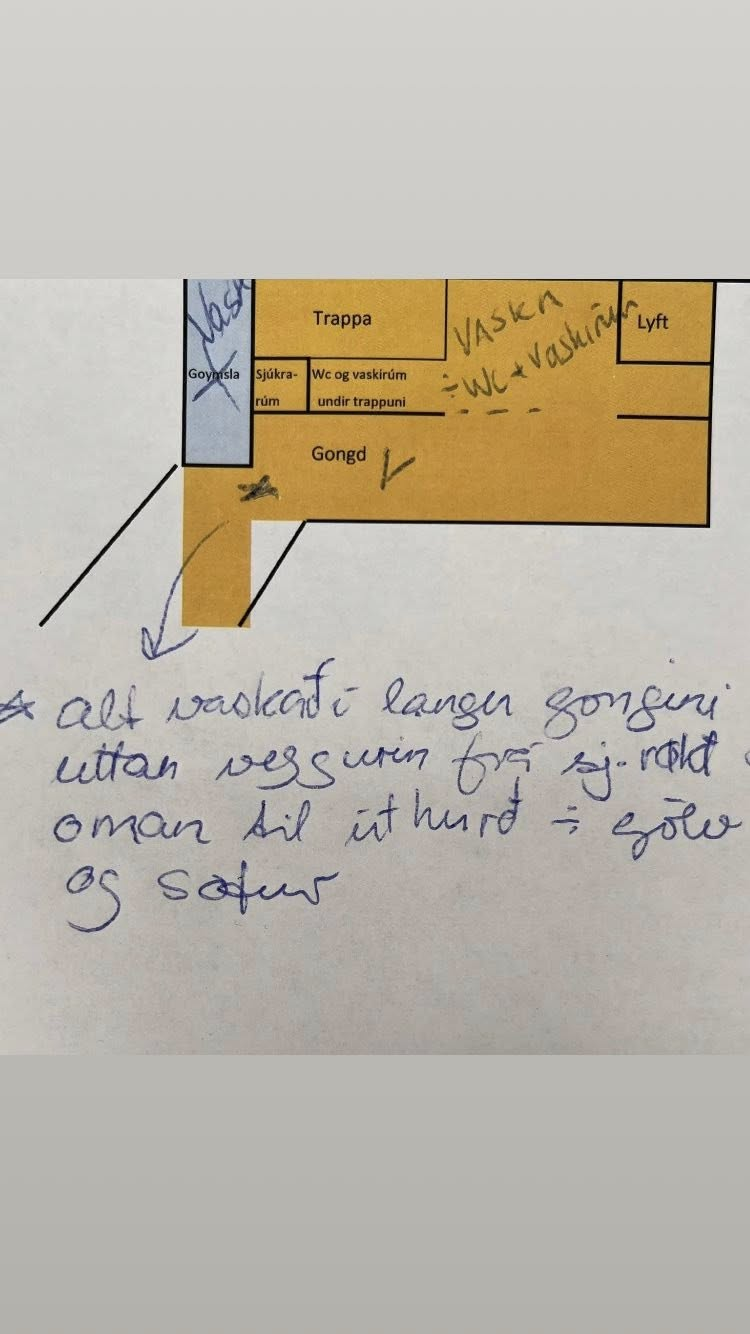 Vask
Trappa
VASKA
÷ WC + Vaskirúm
Lyft
Goymsla
Sjúkra-
rúm
Wc og vaskirúm
undir trappuni
Gongd
alt vaskað í langu gongini
uttan veggurin frá sj.
oman til úthurð ÷ gólv
og